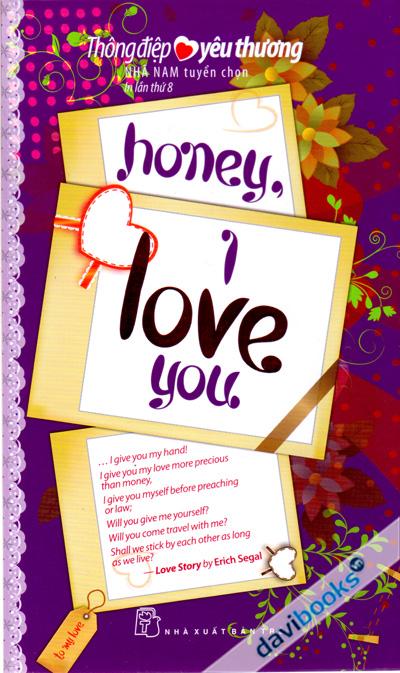 Thông điệp yêu thương
NHÃ NAM tuyển chọn
In lần thứ 8
honey,
i
love
you
... I give you my hand!
I give you my love more precious
than money,
I give you myself before preaching
or law;
Will you give me yourself?
Will you come travel with me?
Shall we stick by each other as long
as we live?
Love Story by Erich Segal
to my love
NHÀ XUẤT BẢN TR
davibooks.vn